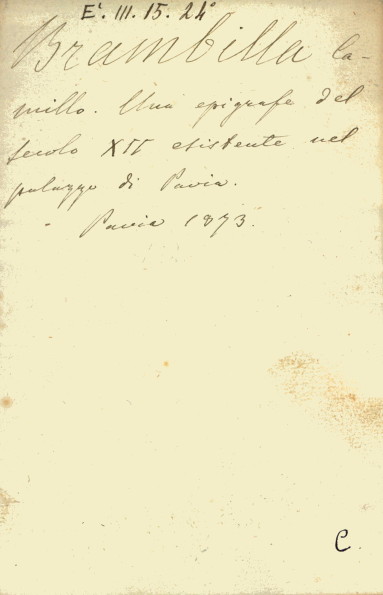 E¹. III. 15. 24°
Brambilla Ca-
millo. Una epigrafe del
secolo XII esistente nel
palazzo di Pavia.
- Pavia 1873.
C